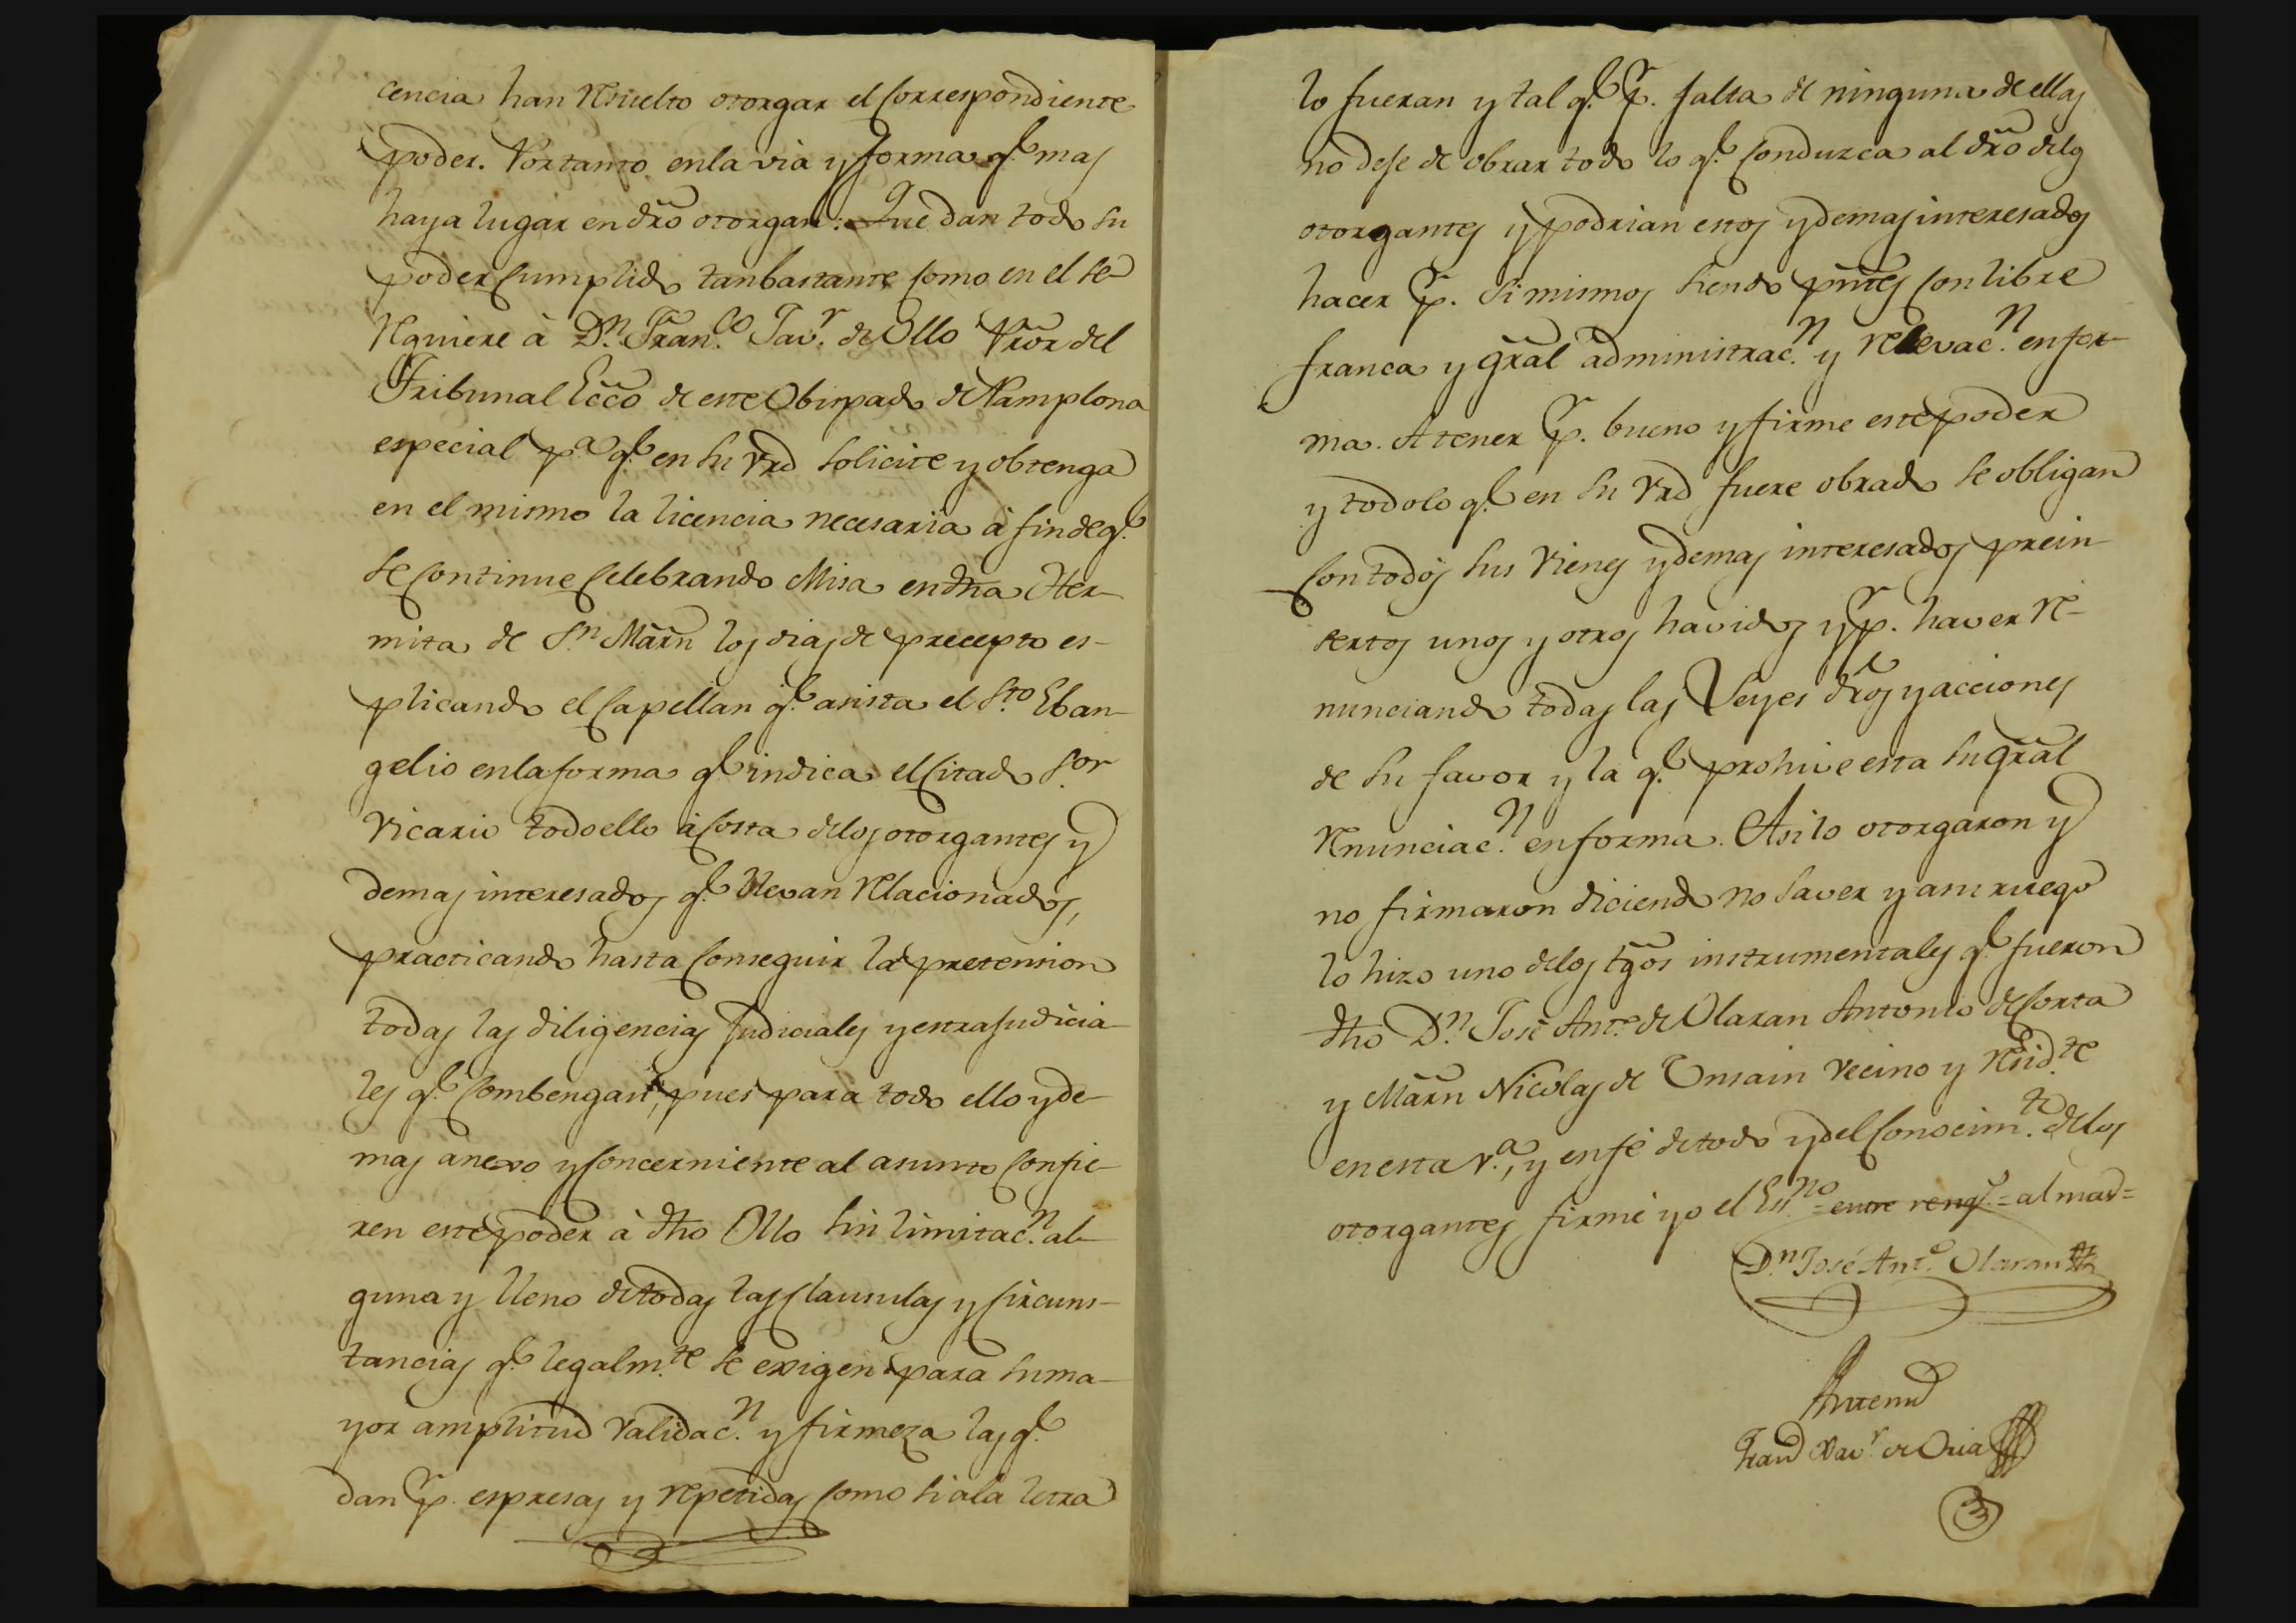 cencia han resuelto otorgar el correspondiente
poder. Portanto enla via y forma q.e mas
haya lugar en dr̃o otorgan: Que dan todo su
poder cumplido tanbastante como en el se
requiere à D.n Fran.co Jav.r de Ollo Pr̃or del
Tribunal Ecc̃o de este Obispado de Pamplona
especial p.a q.e en su vr̃d solicite y obtenga
en el mismo la licencia necesaria à fin de q.e
se continue celebrando Misa en dh̃a Her-
mita de S.n Mar̃n los dias de precepto es-
plicando el Capellan q.e asista el S.to Eban-
gelio enlaforma q.e indica el citado S.or
Vicario todoello à costa delos otorgantes y
demas interesados q.e llevan relacionados,
practicando hasta conseguir la pretension
todas las diligencias Judiciales y extraJudicia-
les q.e combengan, pues para todo ello y de-
mas anexo y concerniente al asunto confie-
ren este poder à dh̃o Ollo sin limitac.n al-
guna y lleno de todas las clausulas y circuns-
tancias q.e legalm.te se exigen para su ma-
yor amplitud validac.n y firmeza las q.e
dan p.r espresas y repetidas como si ala letra
lo fueran y tal q.e p.r falta de ninguna de ellas
no deje de obrar todo lo q.e conduzca al dr̃o delos
otorgantes y podrian estos y demas interesados
hacer p.r si mismos siendo pñtes con libre
franca y gr̃al administrac.n y relevac.n en for-
ma. A tener p.r bueno y firme este poder
y todo lo q.e en su vr̃d fuere obrado se obligan
con todos sus vienes y demas interesados prein-
sertos unos y otros havidos y p.r haver re-
nunciando todas las Leyes dr̃os y acciones
de su favor y la q.e prohive esta su gr̃al
renunciac.n en forma. Asi lo otorgaron y
no firmaron diciendo no saver y asu ruego
lo hizo uno delos tg̃os instrumentales q.e fueron
dh̃o D.n José Ant.o de Olaran Antonio de Corta
y Mar̃n Nicolas de Unsain vecino y resid.te
en esta v.a, y en fé de todo y del conocim.to delos
otorgantes firmé yo el Es.no = entre reng.s = al mas =
D.n José Ant.o Olaran
Antemi
Fran.co Xav.r de Oria